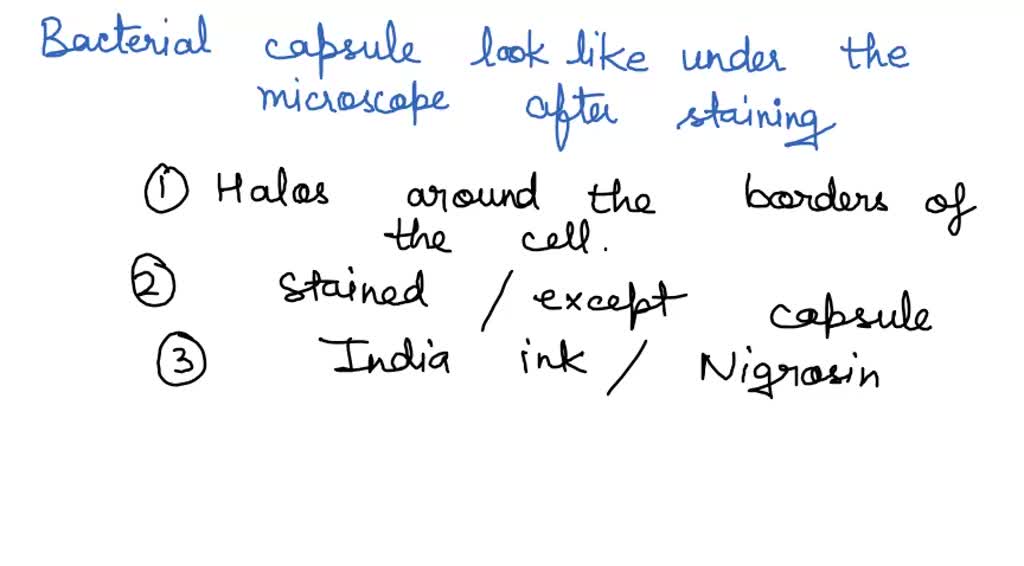 Bacterial capsule look like under the
microscope after staining
① Halos around the borders of
the cell.
② Stained / except capsule
③ India ink / Nigrosin